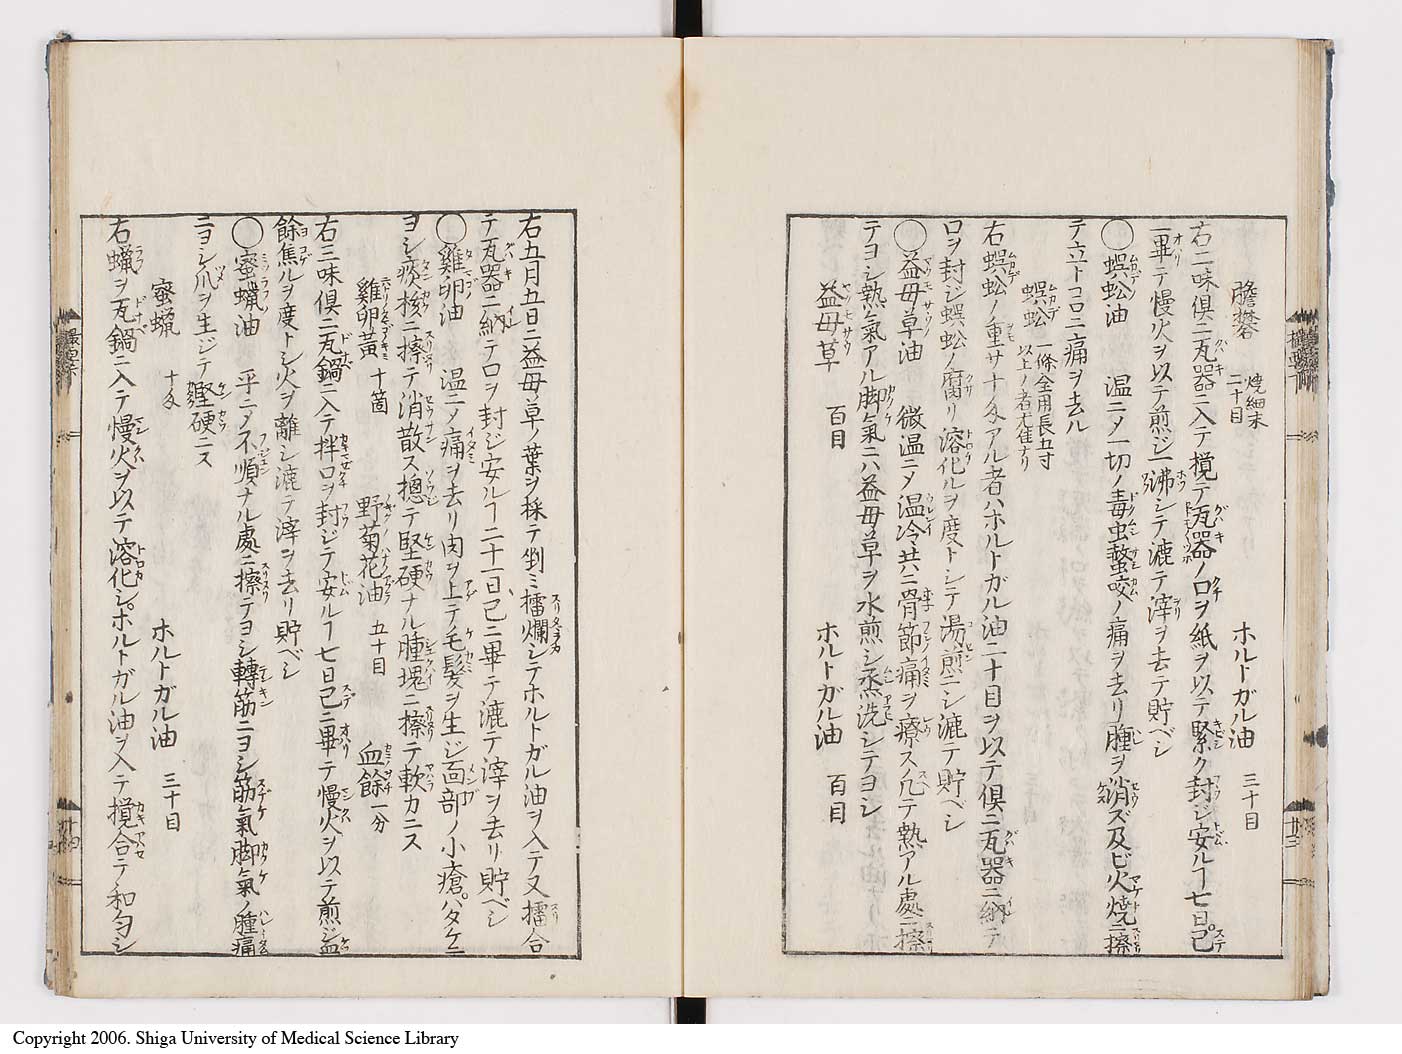 膽礬 焼細末 二十目 ホルトガル油 三十目
右二味倶ニ瓦器ニ入テ攪テ瓦器ノ口ヲ紙ヲ以テ緊ク封ジ安ルヿ七日已
ニ畢テ慢火ヲ以テ煎ジ一沸シテ漉テ滓ヲ去テ貯ベシ
○蜈蚣油 温ニメ一切ノ毒虫螫咬ノ痛ヲ去リ腫ヲ消ズ及ビ火焼ニ擦
テ立トコロニ痛ヲ去ル
蜈蚣 一條全用長五寸 以上ノ者尤佳ナリ
右蜈蚣ノ重サ十匁アル者ハホルトガル油二十目ヲ以テ倶ニ瓦器ニ納テ
口ヲ封ジ蜈蚣ノ腐リ溶化ルヲ度トシテ湯煎ニシ漉テ貯ベシ
○益母草油 微温ニメ温冷共ニ骨節痛ヲ療ス凡テ熱アル處ニ擦
テヨシ熱氣アル脚氣ニハ益母草ヲ水煎シ烝洗シテヨシ
益母草 百目 ホルトガル油 百目
右五月五日ニ益母草ノ葉ヲ採テ剉ミ擂爛シテホルトガル油ヲ入テ又擂合
テ瓦器ニ納テ口ヲ封ジ安ルヿ二十日已ニ畢テ漉テ滓ヲ去リ貯ベシ
○雞卵油 温ニメ痛ヲ去リ肉ヲ上テ毛髪ヲ生ジ面部ノ小瘡ハタケニ
ヨシ痰核ニ擦テ消散ス摠テ堅硬ナル腫塊ニ擦テ軟カニス
雞卵黄 十箇 野菊花油 五十目 血餘 一分
右三味倶ニ瓦鍋ニ入テ拌口ヲ封ジテ安ルヿ七日已ニ畢テ慢火ヲ以テ煎ジ血
餘焦ルヲ度トシ火ヲ離シ漉テ滓ヲ去リ貯ベシ
○蜜蠟油 平ニメ不順ナル處ニ擦テヨシ轉筋ニヨシ筋氣脚氣ノ腫痛
ニヨシ爪ヲ生ジテ硬ニス
蜜蝋 十匁 ホルトガル油 三十目
右蝋ヲ瓦鍋ニ入テ慢火ヲ以テ溶化シホルトガル油ヲ入テ攪合テ和匀シ
廿三
廿四
Copyright 2006. Shiga University of Medical Science Library